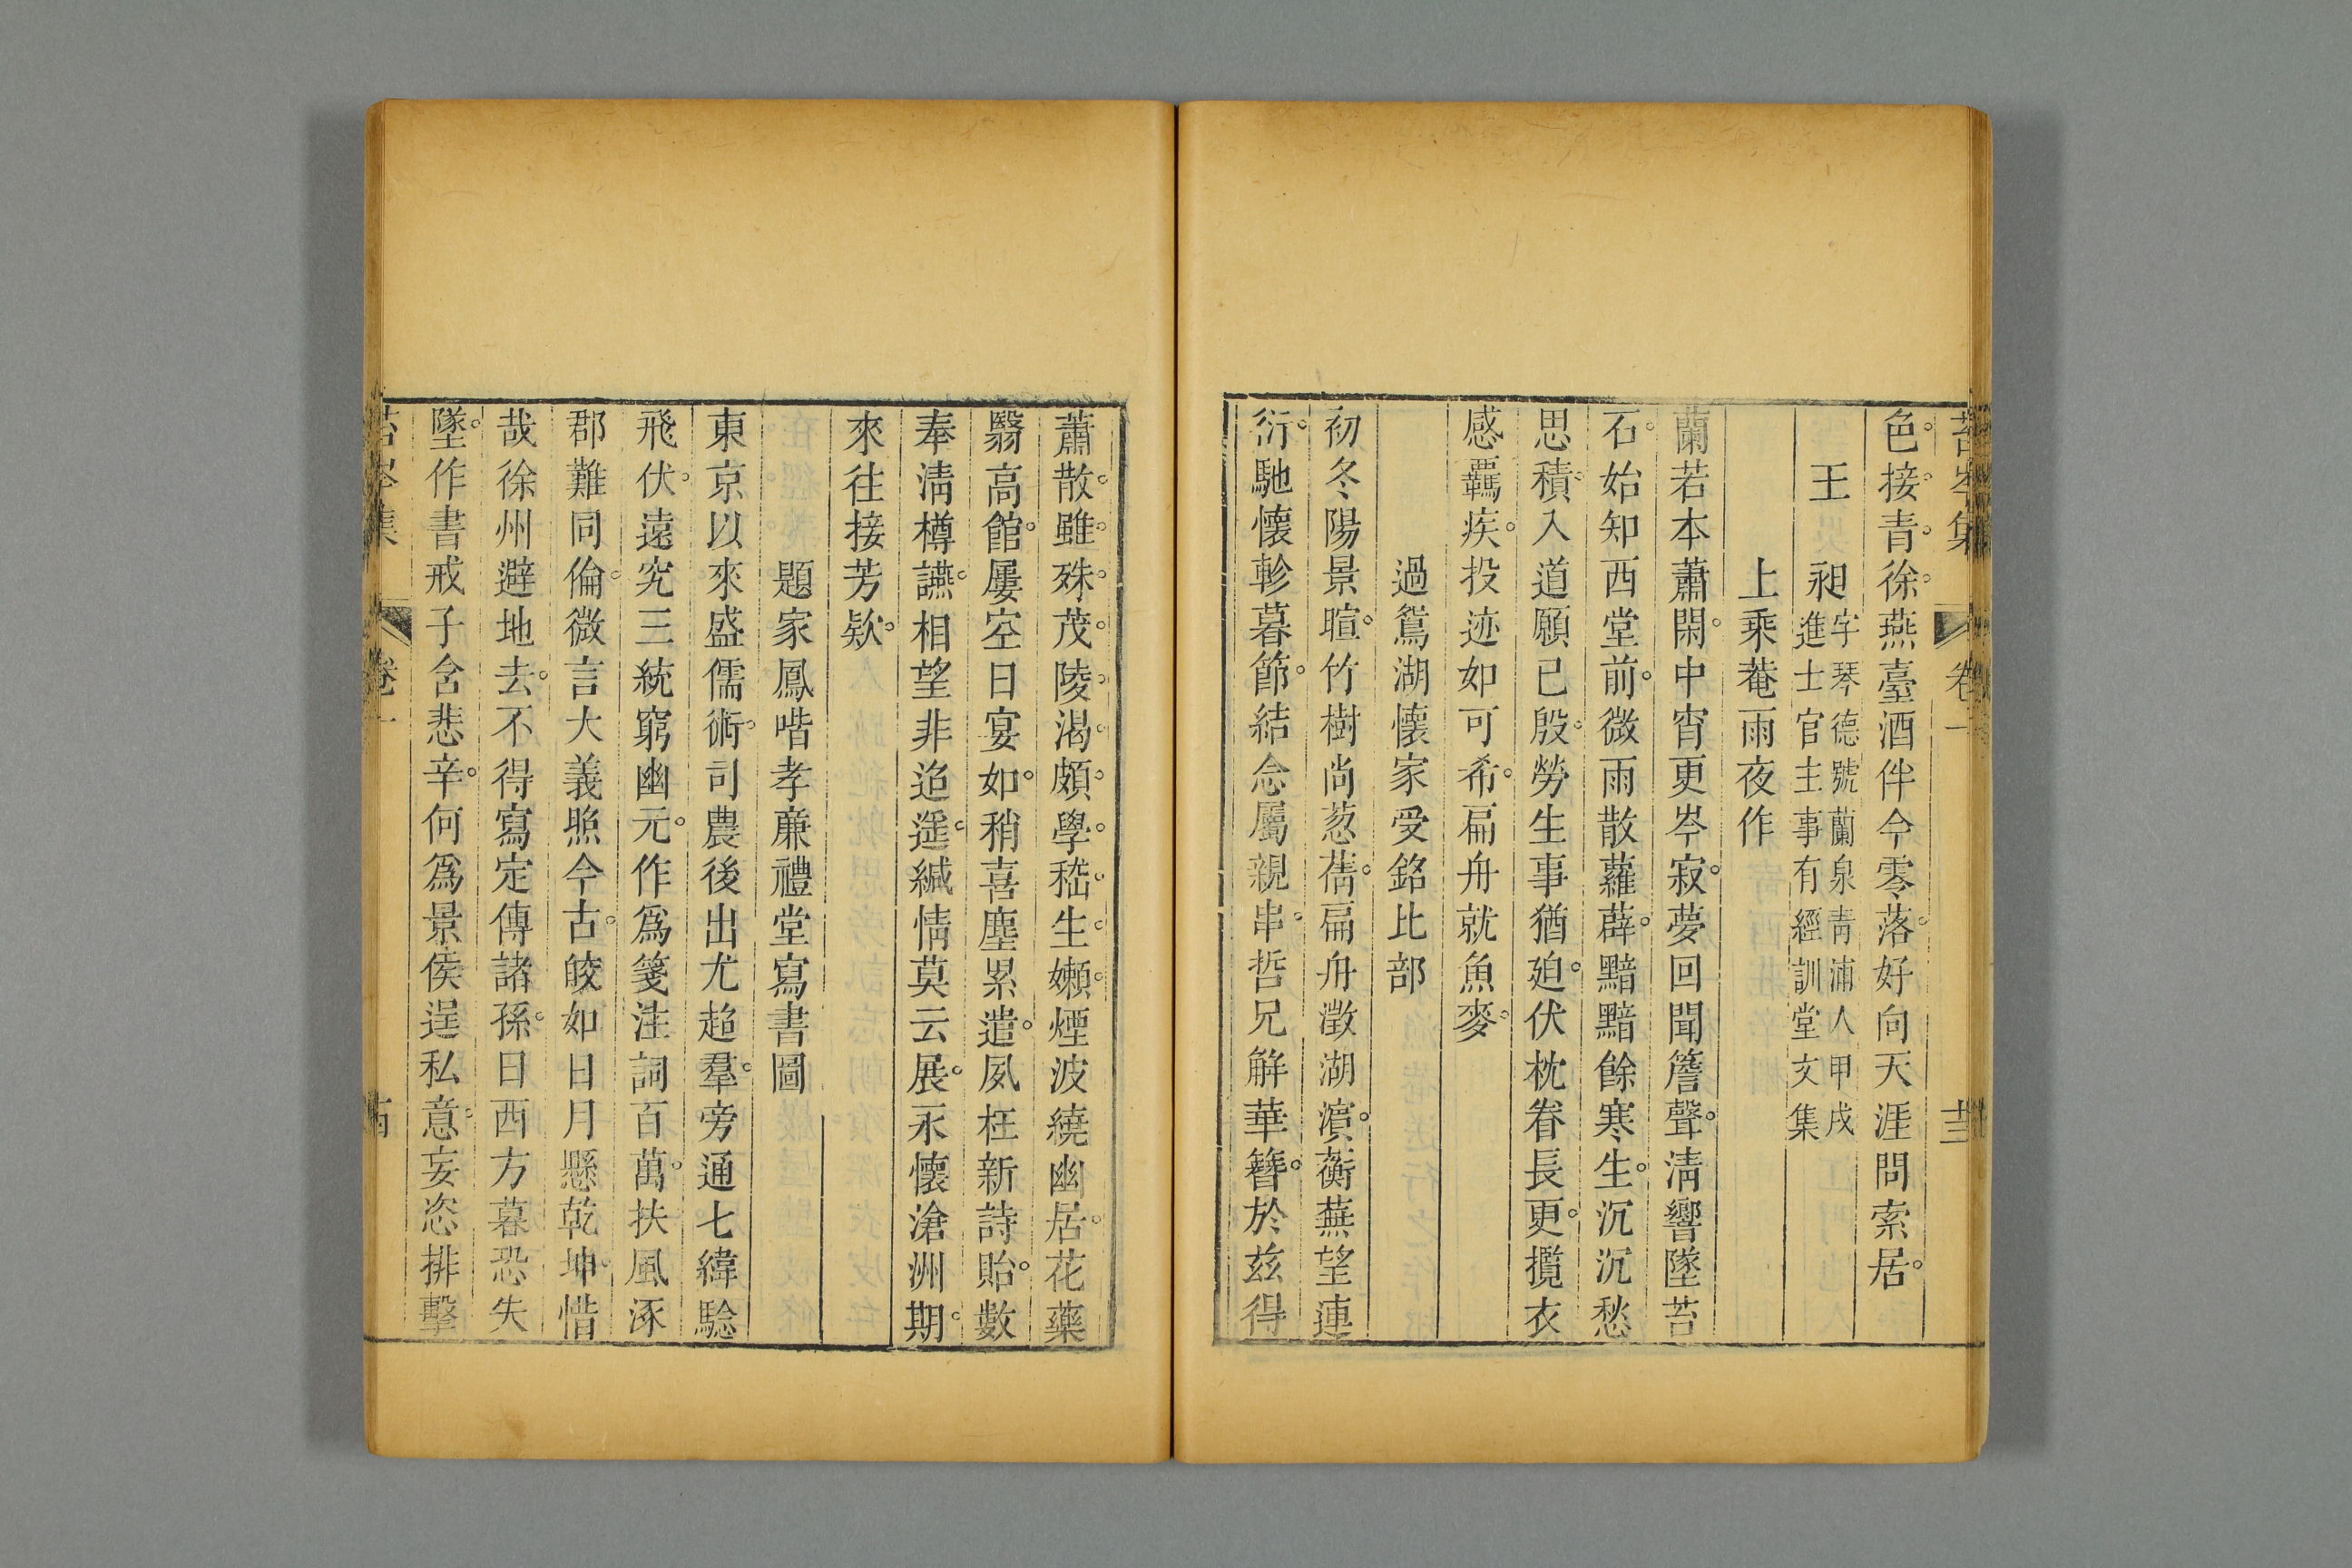 苔岑集 卷一 十三
色。接。青。徐。燕臺酒伴今零落。好向天涯問索居。
王 昶字琴德號蘭泉青浦人甲戌
進士官主事有經訓堂文集
上乘菴雨夜作
蘭若本蕭閑。中宵更岑寂。夢回聞簷聲。清響墜苔
石。始知西堂前。微雨散蘿薜。黯黯餘寒生。沉沉愁
思積。入道願已殷。勞生事猶廹。伏枕眷長更。攬衣
感羈疾。投迹如可希。扁舟就魚麥。
過鴛湖懷家受銘比部
初冬陽景暄。竹樹尚葱蒨。扁舟澂湖濵。蘅蕪望連
衍。馳懷軫暮節。結念屬親串。哲兄解華簪。於兹得
蕭散。雖。殊。茂。陵。渴。頗。學。嵇。生。嬾。煙波繞幽居。花藥
翳高館。屢空日宴如。稍喜塵累遣。夙枉新詩貽。數
奉清樽讌。相望非迢遥。緘情莫云展。永懷滄洲期。
來往接芳欵。
題家鳳喈孝廉禮堂寫書圖
東京以來盛儒術。司農後出尤超羣。旁通七緯驗
飛伏。遠究三統窮幽元。作爲箋注詞百萬。扶風涿
郡難同倫。微言大義照今古。皎如日月懸乾坤。惜
哉徐州避地去。不得寫定傳諸孫。日西方暮恐失
墜。作書戒子含悲辛。何爲景侯逞私意。妄恣排擊
苔岑集 卷一